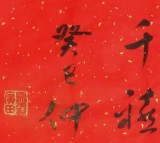 千禧
癸巳仲